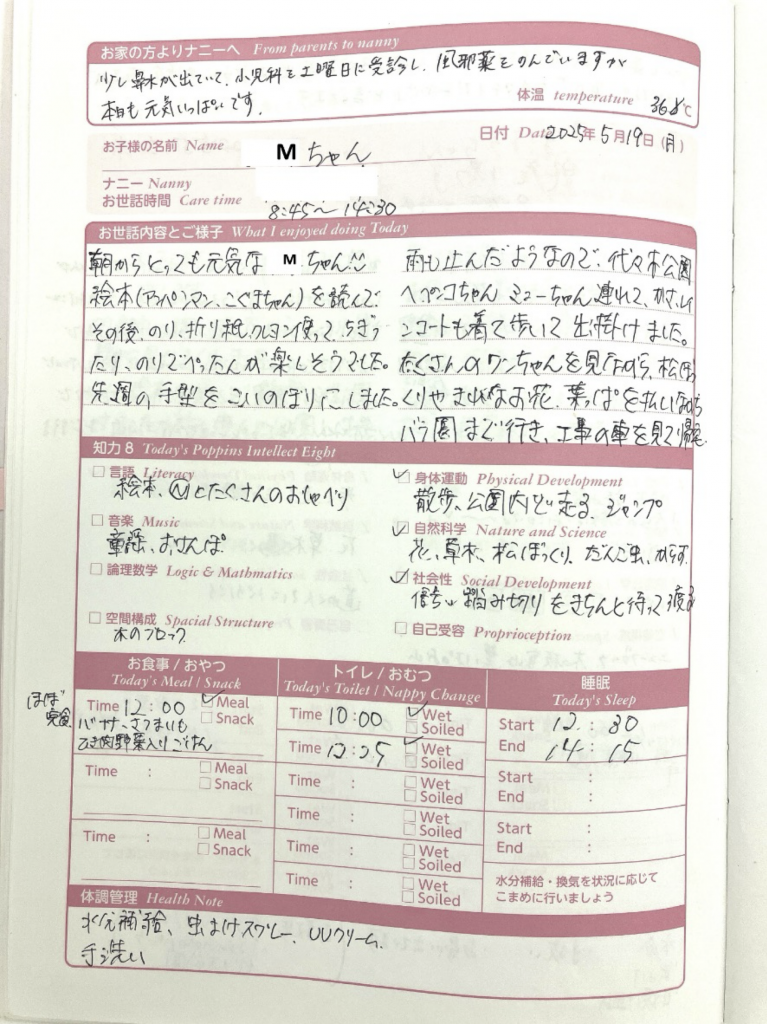 お家の方よりナニーへ From parents to nanny
少し鼻水が出ていて、小児科を土曜日に受診し、風邪薬をのんでいますが
本日も元気いっぱいです。
体温 temperature 36.8℃
日付 Date 2025年5月19日(月)
お子様の名前 Name Mちゃん
ナニー Nanny
お世話時間 Care time 8:45〜14:30
お世話内容とご様子 What I enjoyed doing Today
朝からとっても元気な Mちゃん
絵本(アンパンマン、こぐまちゃん)を読んで
その後、のり、折り紙、クレヨン使って、ちぎっ
たり、のりでぺったんが楽しそうでした。
先週の手型をこいのぼりにしました。
雨も止んだようなので、代々木公園
へワンコちゃん ミューちゃん連れて、かさ、レイ
ンコートも着て歩いて出掛けました。
たくさんのワンちゃんを見ながら、松ぼっ
くりや きれいなお花、葉っぱを拾いながら
バラ園まで行き、工事の車を見て帰宅
知力8 Today's Poppins Intellect Eight
言語 Literacy
絵本、Mとたくさんのおしゃべり
音楽 Music
童謡、おさんぽ
論理数学 Logic & Mathmatics
空間構成 Spacial Structure
木のブロック
身体運動 Physical Development
散歩、公園内で走る、ジャンプ
自然科学 Nature and Science
花、草木、松ぼっくり、だんご虫、からす
社会性 Social Development
踏み切りをきちんと待って渡る
自己受容 Proprioception
お食事 / おやつ
Today's Meal / Snack
ほぼ
完食
Time 12:00 Meal
Snack
バナナ、さつまいも
ひき肉野菜入りごはん
Time : Meal
Snack
Time : Meal
Snack
トイレ / おむつ
Today's Toilet / Nappy Change
Time 10:00 Wet
Soiled
Time 12:25 Wet
Soiled
Time : Wet
Soiled
Time : Wet
Soiled
Time : Wet
Soiled
Time : Wet
Soiled
睡眠
Today's Sleep
Start 12:30
End 14:15
Start :
End :
Start :
End :
水分補給・換気を状況に応じて
こまめに行いましょう
体調管理 Health Note
水分補給、虫よけスプレー、UVクリーム
手洗い